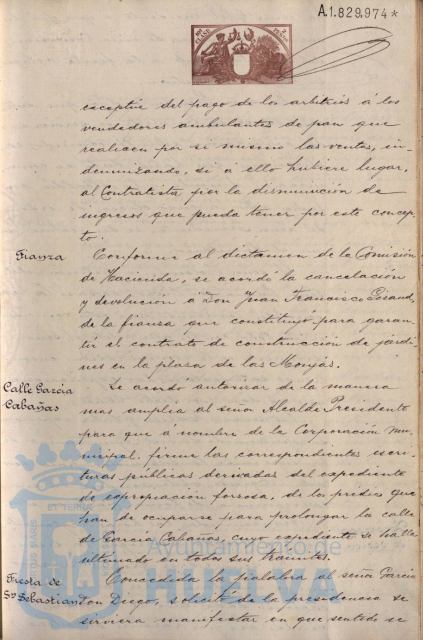 A.1.829.974*
exceptúe del pago de los arbitrios á los
vendedores ambulantes de pan que
realicen por si mismo las ventas, in-
demnizando, si á ello hubiere lugar,
al Contratista por la disminución de
ingresos que pueda tener por este concep-
to.
Fianza
Conforme al dictamen de la Comisión
de Hacienda, se acordó la cancelación
y devolución á Don Juan Francisco
de la fianza que constituyó para garan-
tir el contrato de construcción de jardi-
nes en la plaza de las Monjas.
Calle Garcia
Cabañas
Se acordó autorizar de la manera
mas amplia al señor Alcalde Presidente
para que á nombre de la Corporación mu-
nicipal firme las correspondientes escri-
turas públicas derivadas del expediente
de expropiación forzosa, de los predios que
han de ocuparse para prolongar la calle
de Garcia Cabañas, cuyo expediente se halla
ultimado en todos sus tramites.
Fiesta de
Sn Sebastian
Concedida la palabra al señor Garcia
Don Diego, solicitó de la presidencia se
sirviera manifestar en que sentido se
Ayuntamiento de
HUELVA